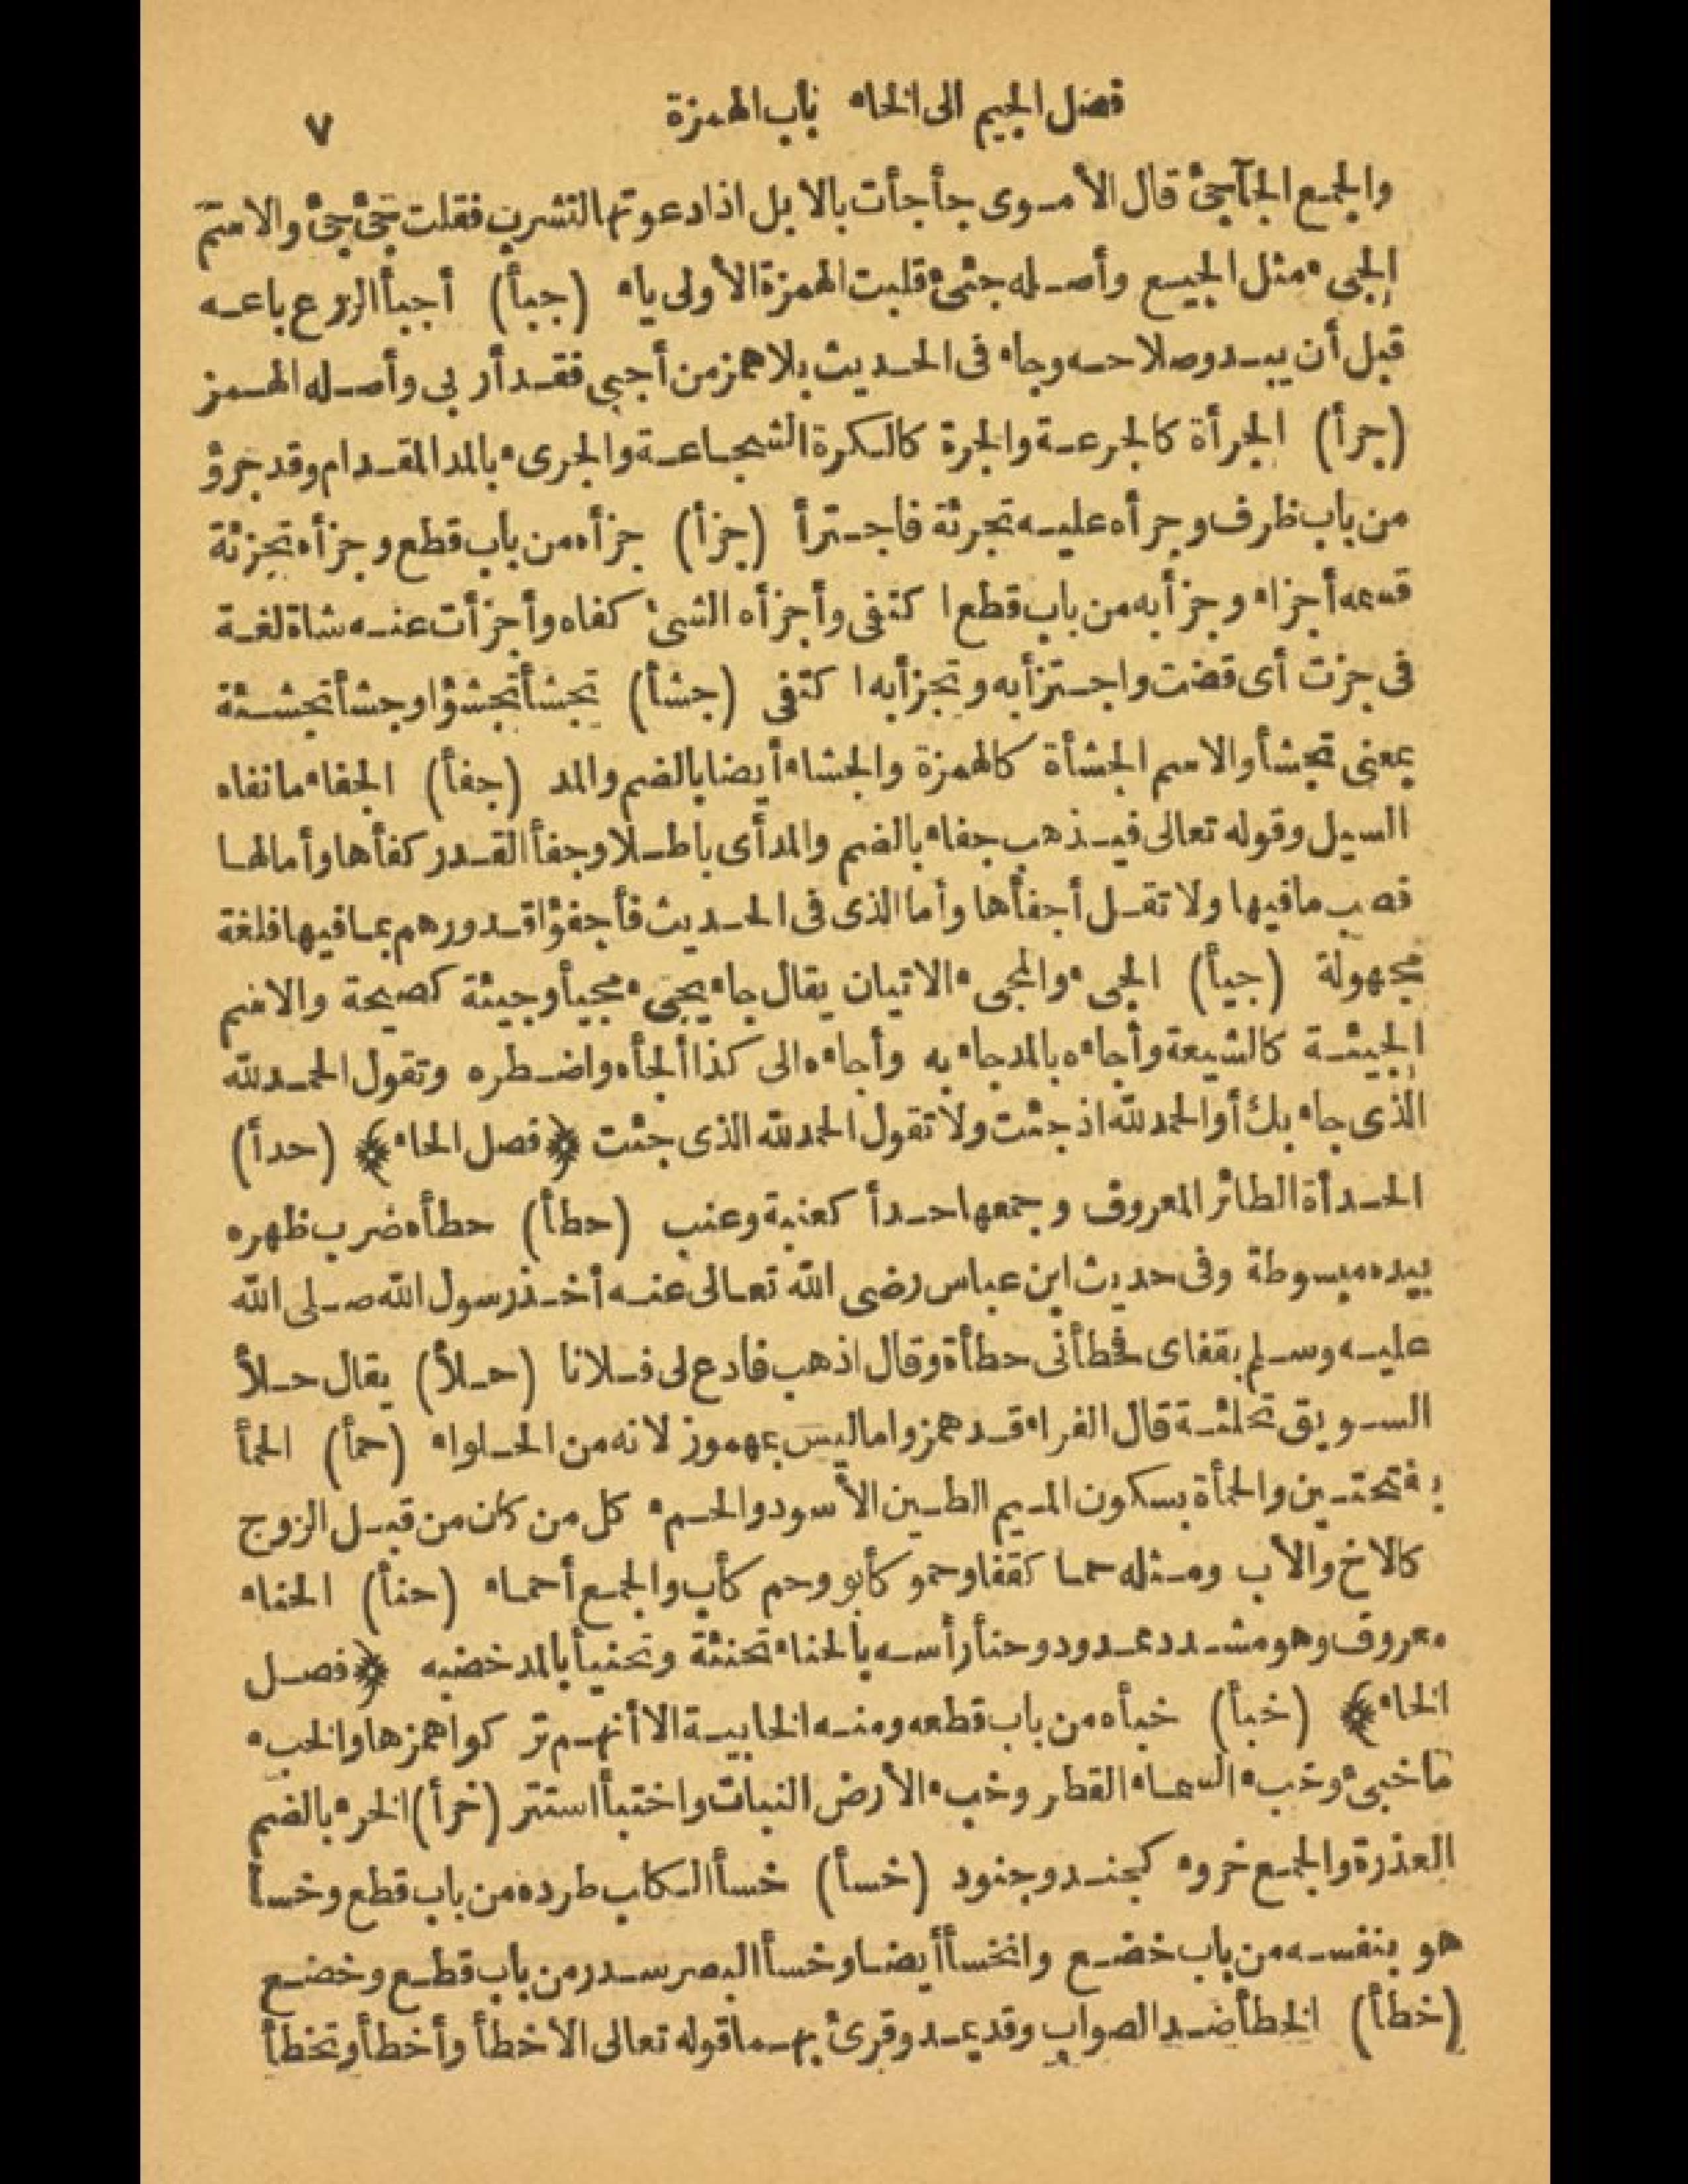 فصل الجيم الى الخاء باب الهمزة ٧
والجمع الجآجئ قال الأموى جأجأت بالابل اذا دعوتها لتشرب فقلت جئ جئ والاسم
الجىء مثل الجيع وأصله جئء قلبت الهمزة الأولى ياء (جبأ) أجبأ الزرع باعه
قبل أن يبدو صلاحه وجاء فى الحديث بلاهمز من أجبى فقد أربى وأصله الهمز
(جرأ) الجرأة كالجرعة والجرة كالكرة الشجاعة والجرىء بالمد المقدام وقد جرؤ
من باب ظرف وجرأه عليه تجرئة فاجترأ (جزأ) جزأه من باب قطع وجزأه تجزئة
قسمه أجزاء وجزأ به من باب قطع اكتفى وأجزأه الشئ كفاه وأجزأت عنه شاة لغة
فى جزت أى قضت واجتزأ به وتجزأ به اكتفى (جشأ) تجشأ تجشؤا وجشأ تجشئة
بمعنى تجشأ والاسم الجشأة كالهمزة والجشاء أيضا بالضم والمد (جفأ) الجفاء ما نفاه
السيل وقوله تعالى فيذهب جفاء بالضم والمد أى باطلا وجفأ القدر كفأها وأمالها
فصب مافيها ولا تقل أجفأها وأما الذى فى الحديث فأجفؤا قدورهم بما فيها فلغة
مجهولة (جيأ) الجىء والمجىء الاتيان يقال جاء يجىء مجيأ وجيئة كصيحة والاسم
الجيئة كالشيعة وأجاءه بالمد جاء به وأجاءه الى كذا ألجأه واضطره وتقول الحمد لله
الذى جاء بك أو الحمد لله اذ جئت ولا تقول الحمد لله الذى جئت ﴿فصل الحاء﴾ (حدأ)
الحدأة الطائر المعروف وجمعها حدأ كعنبة وعنب (حطأ) حطأه ضرب ظهره
بيده مبسوطة وفى حديث ابن عباس رضى الله تعالى عنه أخذ رسول الله صلى الله
عليه وسلم بقفاى فحطأنى حطأة وقال اذهب فادع لى فلانا (حلأ) يقال حلأ
السويق تحلئة قال الفراء قد همزوا ما ليس بمهموز لانه من الحلواء (حمأ) الحمأ
بفتحتين والحمأة بسكون الميم الطين الأسود والحمء كل من كان من قبل الزوج
كالاخ والأب ومثله حما كقفا وحمو كأبو وحم كأب والجمع أحماء (حنأ) الحناء
معروف وهو مشدد ممدود وحنأ رأسه بالحناء تحنئة وتحنيأ بالمد خضبه ﴿فصل
الخاء﴾ (خبأ) خبأه من باب قطعه ومنه الخابية الا أنهم تركوا همزها والخبء
ماخبئ وخبء السماء القطر وخبء الأرض النبات واختبأ استتر (خرأ) الخرء بالضم
العذرة والجمع خروء كجند وجنود (خسأ) خسأ الكلب طرده من باب قطع وخسأ
هو بنفسه من باب خضع وانخسأ أيضا وخسأ البصر سدر من باب قطع وخضع
(خطأ) الخطأ ضد الصواب وقد يمد وقرئ بهما قوله تعالى الا خطأ وأخطأ وتخطأ